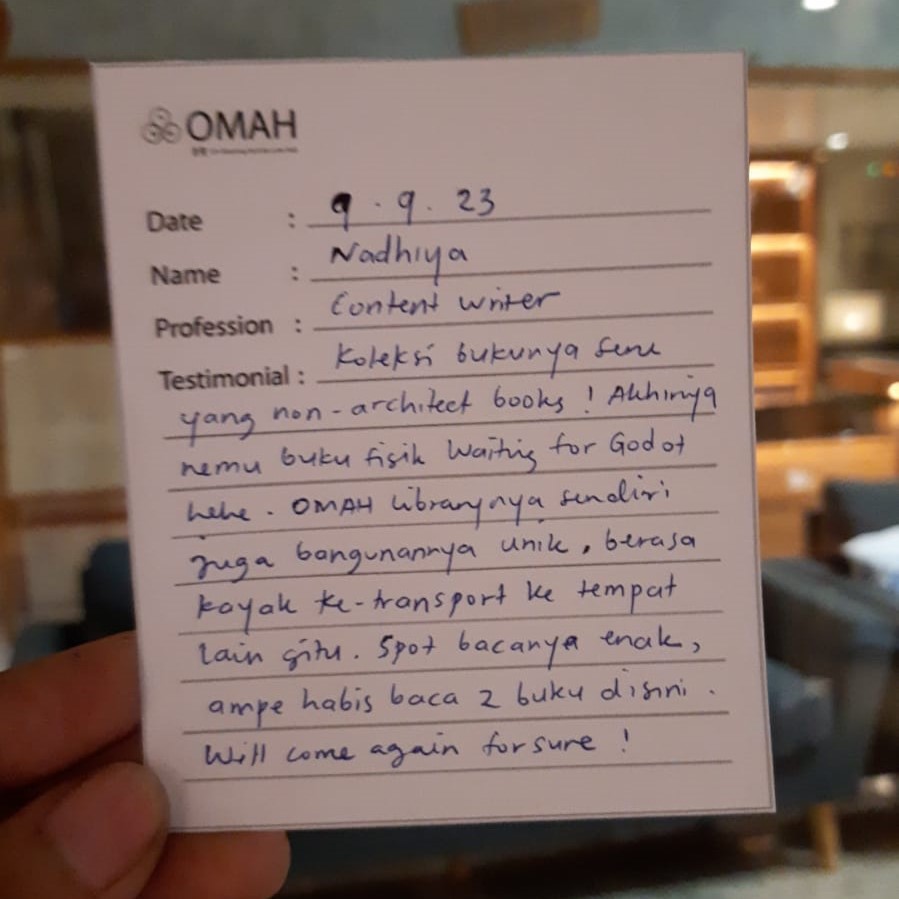 OMAH
Date : 9 . 9 . 23
Name : Nadhiya
Profession : Content writer
Testimonial : Koleksi bukunya seru
yang non-architect books ! Akhirnya
nemu buku fisik Waiting for Godot
hehe . OMAH librarynya sendiri
juga bangunannya unik , berasa
kayak ke-transport ke tempat
lain gitu . Spot bacanya enak ,
ampe habis baca 2 buku disini .
Will come again for sure !